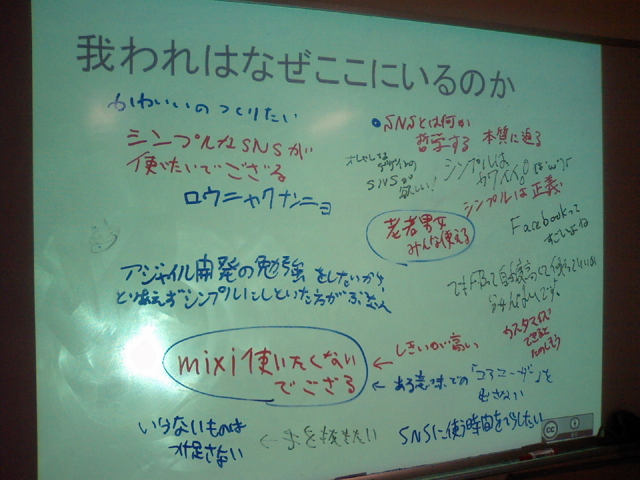 我われはなぜここにいるのか
かわいいの つくりたい
シンプルなSNSが
使いたいでござる
ロウニャクナンニョ
●SNSとは何か
哲学する 本質に迫る
オシャレな
デザインの
SNSが
欲しい!
シンプルは
カワイイ。
シンプルは正義
老若男女
みんな使える
Facebookって
すごいよね
アジャイル開発の勉強をしたいから
とりあえずシンプルにしといた方が
カスタマイズ
できると
たのしそう
mixi使いたくない
でござる
← しきいが高い
← ある意味での「コアユーザ」を
出さない
いらないものは
オ足さない
← 手を抜きたい
SNSに使う時間をへらしたい
cc